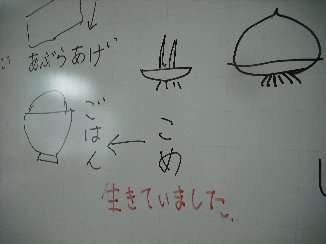 あぶらあげ
ごはん
こめ
生きていました。